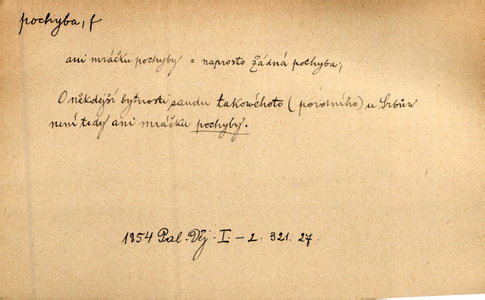 pochyba, f
ani mráčku pochyby = naprosto žádná pochyba;
O někdejší bytnosti saudu takowéhoto (porotního) u Srbůw
není tedy ani mráčku pochyby.
1854 Pal. Děj. I. – 2. 321. 27.